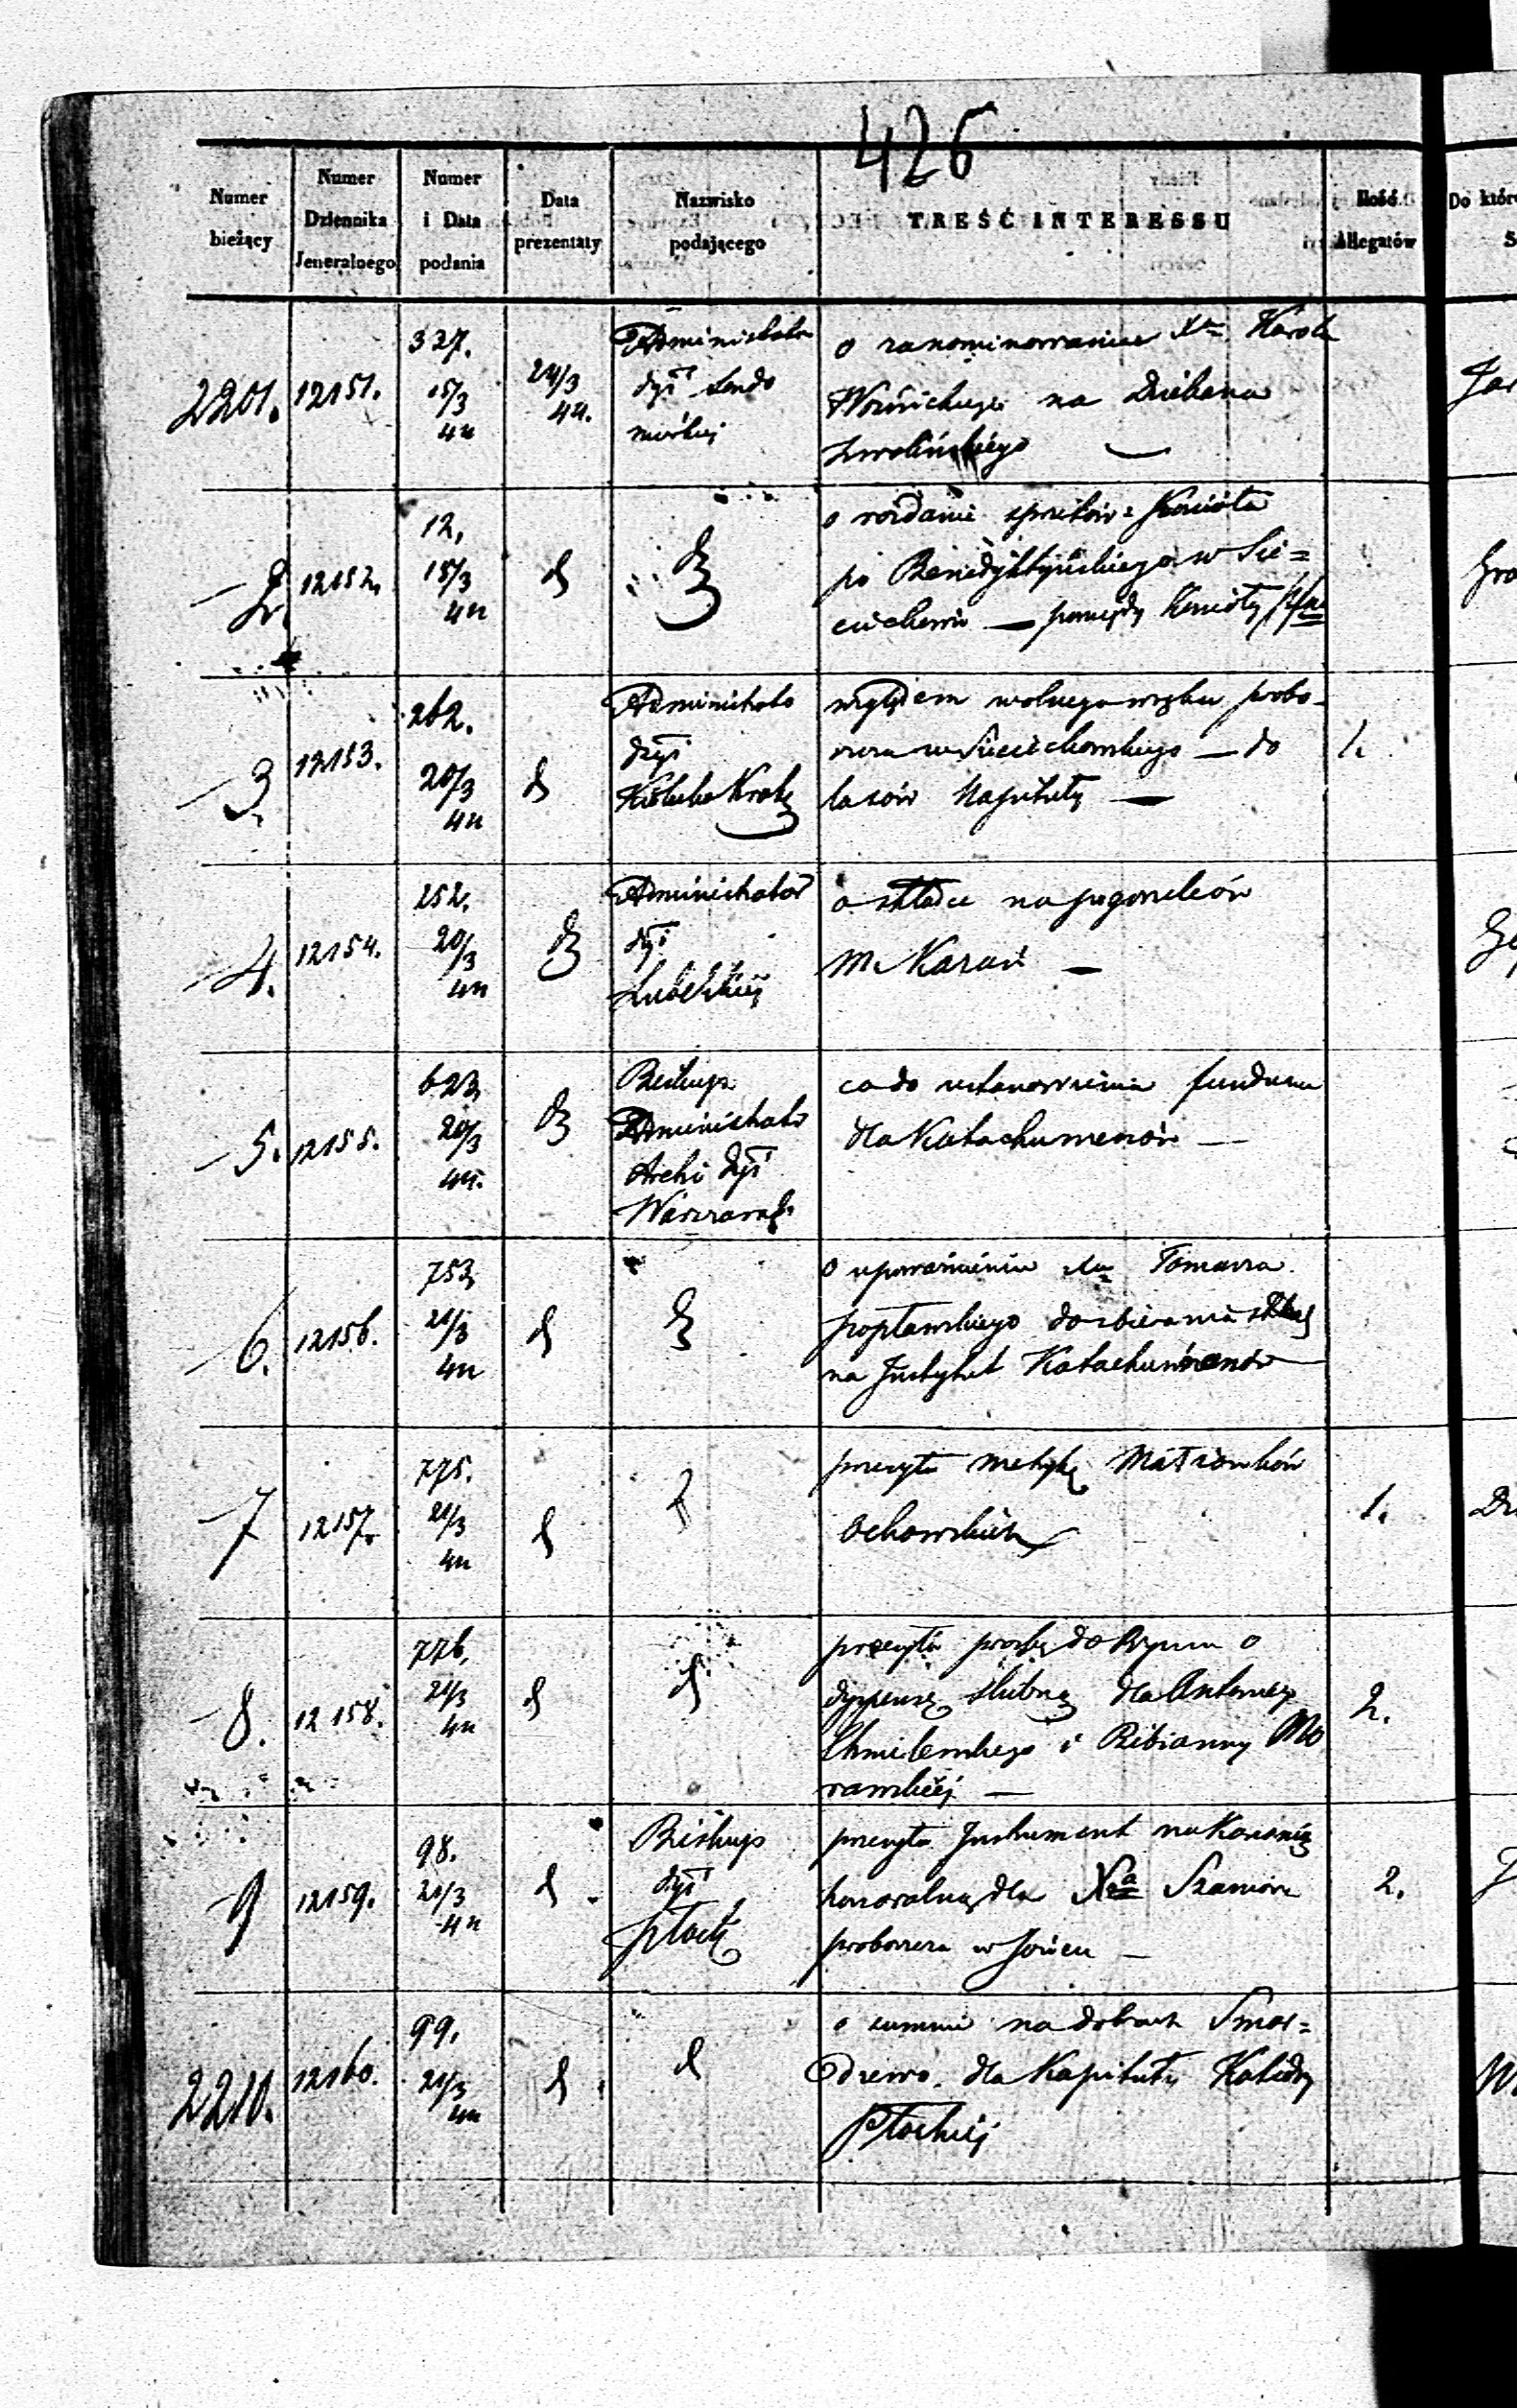 426
Numer bieżący
Numer Dziennika Jeneralnego
Numer i Data podania
Data prezentaty
Nazwisko podającego
TREŚĆ INTERESSU
Ilość Allegatów
Do któr
2201. 12151. 327. 15/3 44 24/3 44. Administrator dyi Sando mirskiej
o zanominowanie Xa Karola
Woźnickiego na Dziekana
Zwolińskiego —
2. 12152. 12, 15/3 44 d
o rozdanie sprzętów Kościoła
po Benedyktyńskiego w Sie=
ciechowie — pomiędzy Kościoły
3. 12153. 262. 20/3 44 d Administrato dyi Kielecko Krak
względem wolnego wrębu probo-
szcza w Sieciechowskiego — do
lasów Kapituły — 1.
4. 12154. 252. 20/3 44 d Administrator dyi Lubelskiej
o składce na pogorzelców
m. Kazań —
5. 12155. 623, 20/3 44. d Biskup Administrator Archi dyi Warszawsk
co do ustanowienia funduszu
dla Katachumenów —
6. 12156. 753, 21/3 44 d
o upoważnienie Tomasza
Popławskiego do zbierania składki
na Instytut Katachumenów
7 12157. 775. 21/3 44 d
przesyła metrykę Małżonków
Ochowskich 1.
8. 12158. 776, 21/3 44 d d
przesyła prośbę do Rzymu o
dyspensę ślubną dla Antoniego
Chmielewskiego i Bibianny Mo
rawskiéj — 2.
9 12159. 98. 21/3 44 d Biskup dyi Płock
przesyła Instrument na Kanonią
honoralną dla Xa Szaniora
proboszcza w Jońcu — 2.
2210. 12160. 99. 21/3 44 d d
o summie na dobrach Smar=
Odrzewo. dla Kapituły Katedry
Płockiéj